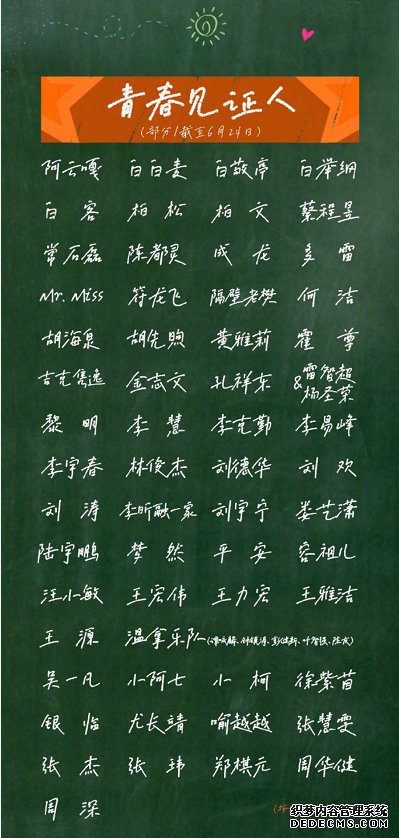 青春见证人
(部分/截至6月24日)
阿云嘎 白白麦 白敬亭 白举纲
白客 柏松 柏文 蔡程昱
常石磊 陈都灵 成龙 多雷
Mr. Miss 符龙飞 隔壁老樊 何洁
胡海泉 胡先煦 黄雅莉 霍尊
吉克隽逸 金志文 孔祥东 雷智超
&杨圣荣
黎明 李慧 李克勤 李易峰
李宇春 林俊杰 刘德华 刘欢
刘涛 李昕融一家 刘宇宁 娄艺潇
陆宇鹏 梦然 平安 容祖儿
汪小敏 王宏伟 王力宏 王雅洁
王源 温拿乐队(谭咏麟、钟镇涛、彭健新、叶智强、陈友)
吴一凡 小阿七 小柯 徐紫茵
银临 尤长靖 喻越越 张慧雯
张杰 张玮 郑棋元 周华健
周深
织梦内容管理系统
DEDECMS.COM